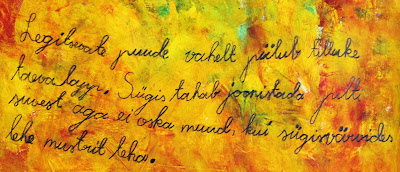 Legitsevate puude vahelt piilub tilluke
taevalapp. Sügis tahab joonistada pilti
suvest aga ei oska muud, kui sügisvärvides
lehe mustrit teha.